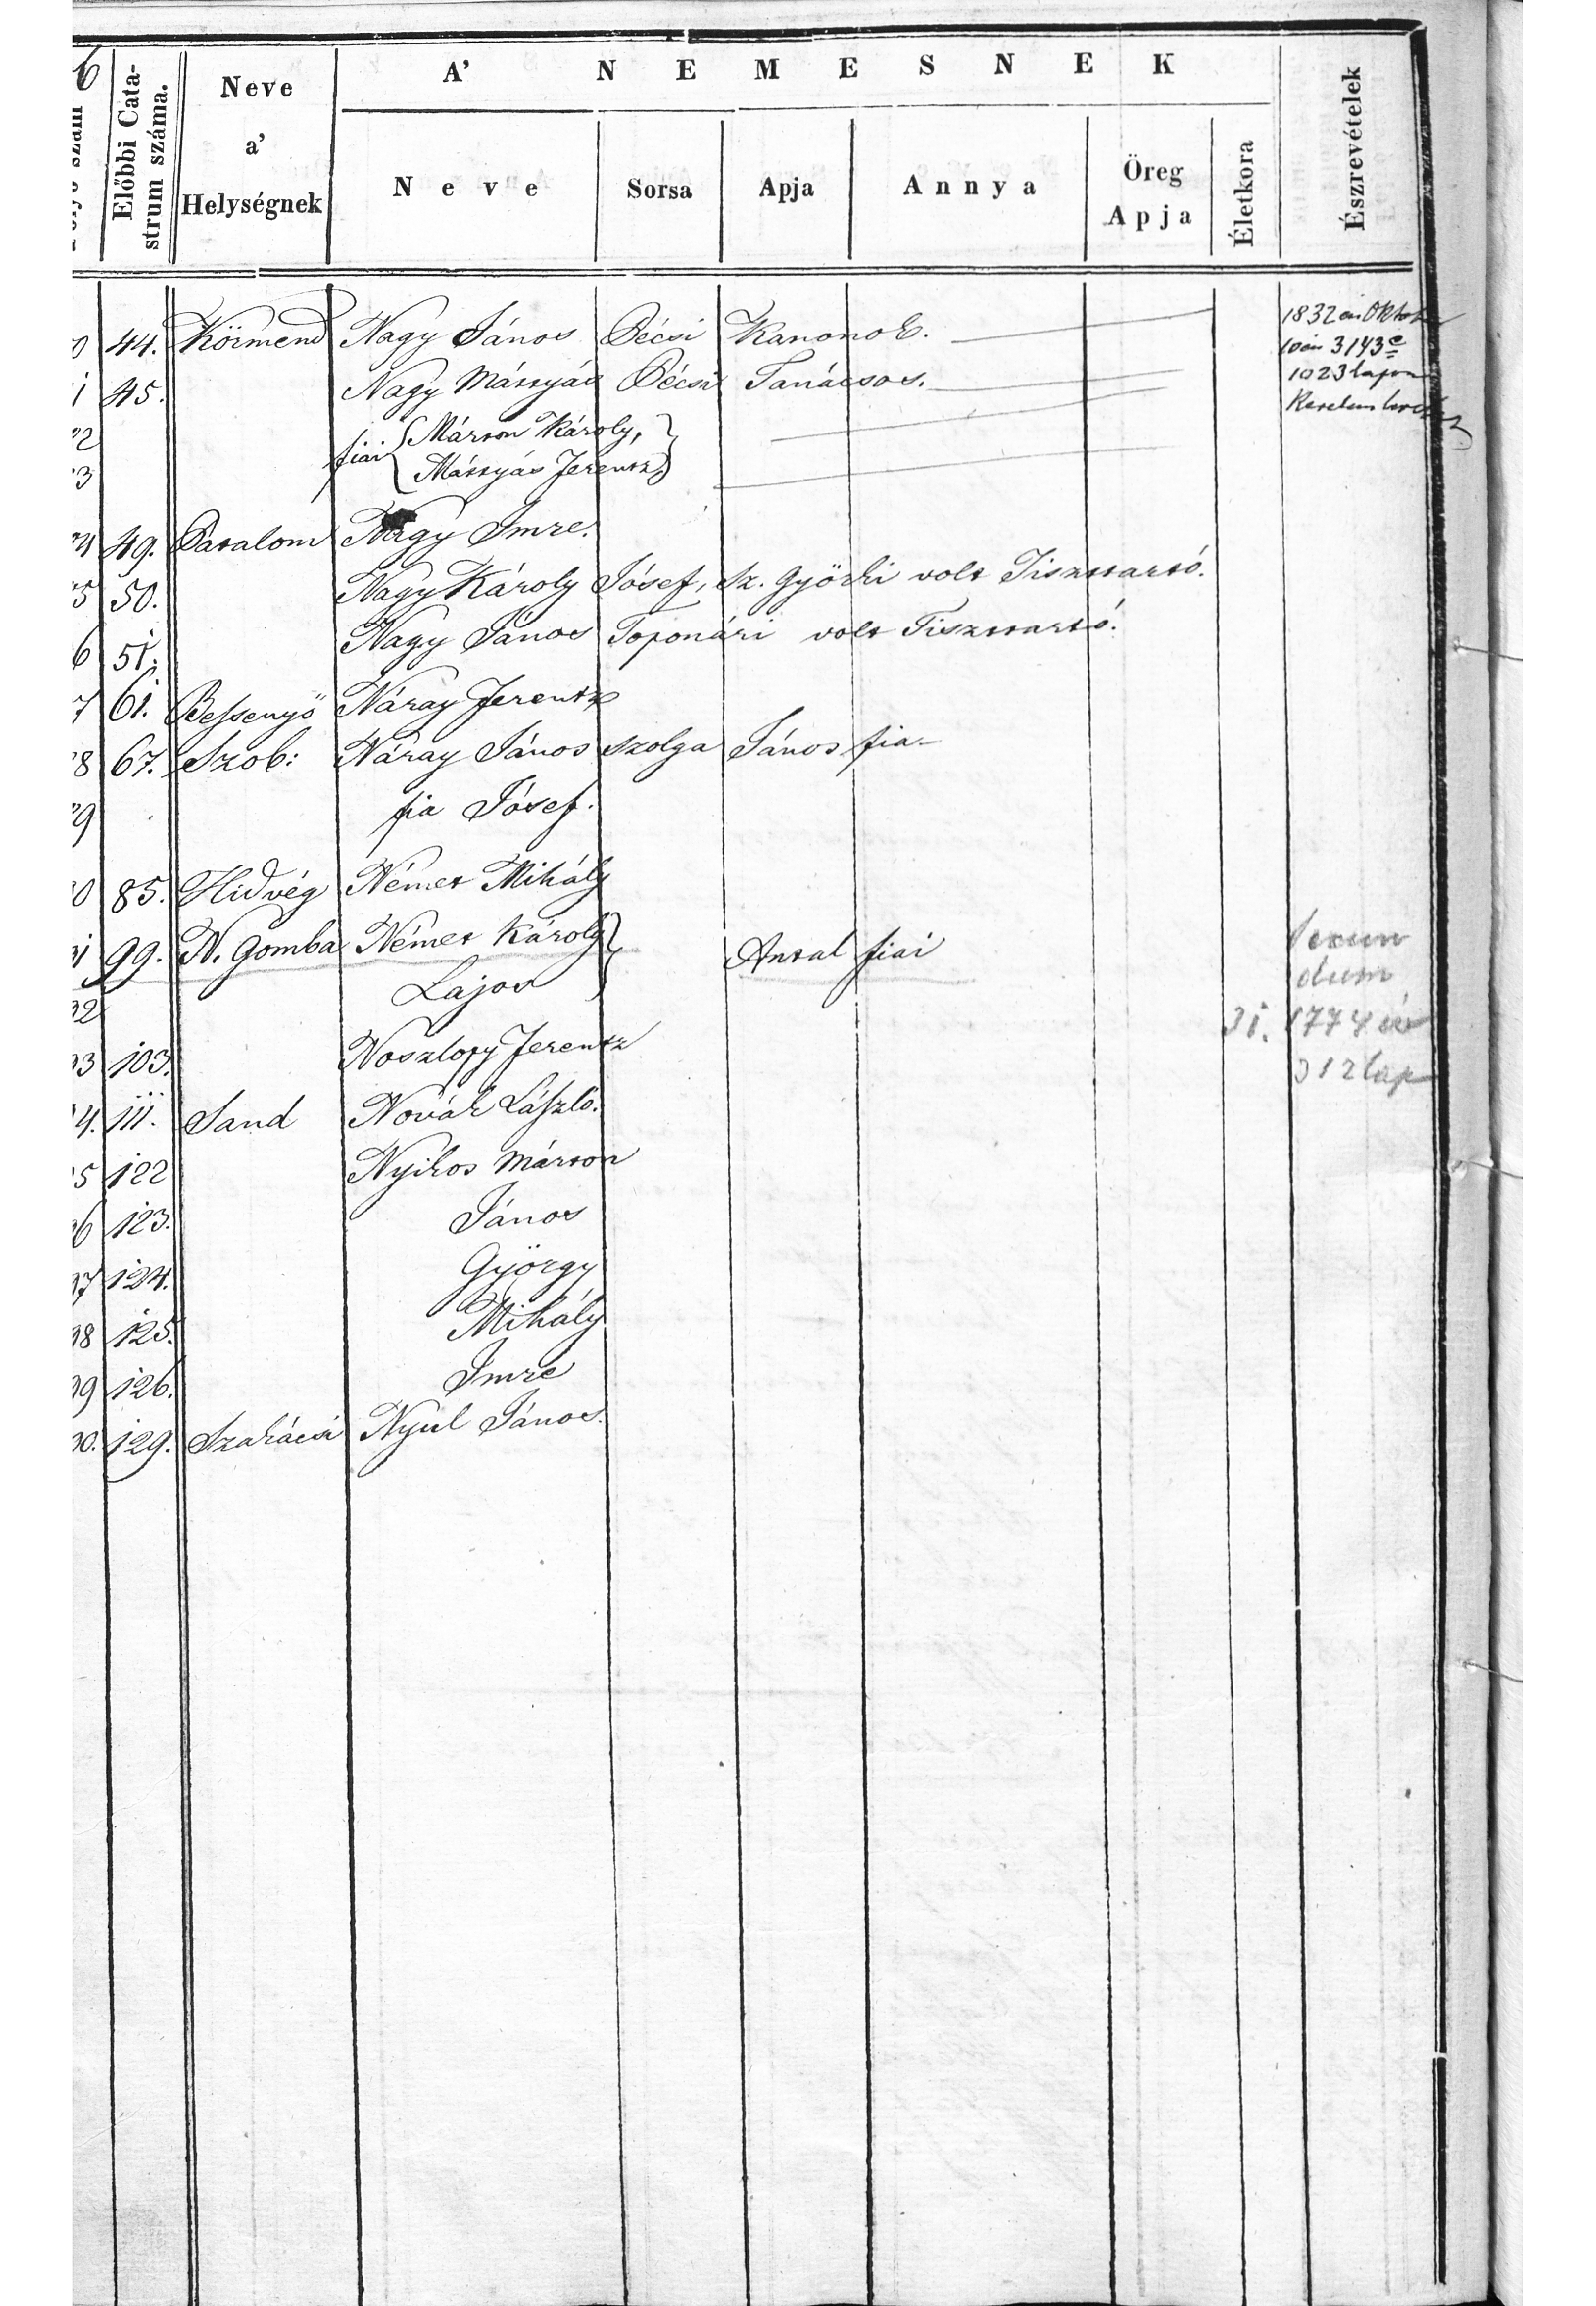 6
Előbbi Cata-
strum száma.
Neve
a’
Helységnek
A’ NEMESNEK
Neve
Sorsa
Apja
Annya
Öreg
Apja
Életkora
Észrevételek
0 44. Körmend Nagy János Bécsi Kanonok.
1832 én Oktob
10én 3143
1023 lapon
1 45. Nagy Mátyás Bécsi Tanácsos.
2 fiai Márton Károly,
3 Mátyás Ferentz,
4 49. Batalom Nagy Imre.
5 50. Nagy Károly Jósef, Sz. Györki volt Tiszttartó.
6 51. Nagy János Toponári volt Tiszttartó.
7 61. Bessenyö Náray Ferentz
8 67. Szob: Náray János szolga János fia
9 fia Jósef.
0 85. Hidvég Német Mihály
1 99. N. Gomba Német Károly Antal fiai
2 Lajos
31. 1774
312 lap
3 103. Noszlopy Ferentz
4. 111. Sand Novák László.
5 122 Nyikos Márton
6 123. János
7 124. György
8 125. Mihály
9 126. Imre
0. 129. Szakácsi Nyúl János.